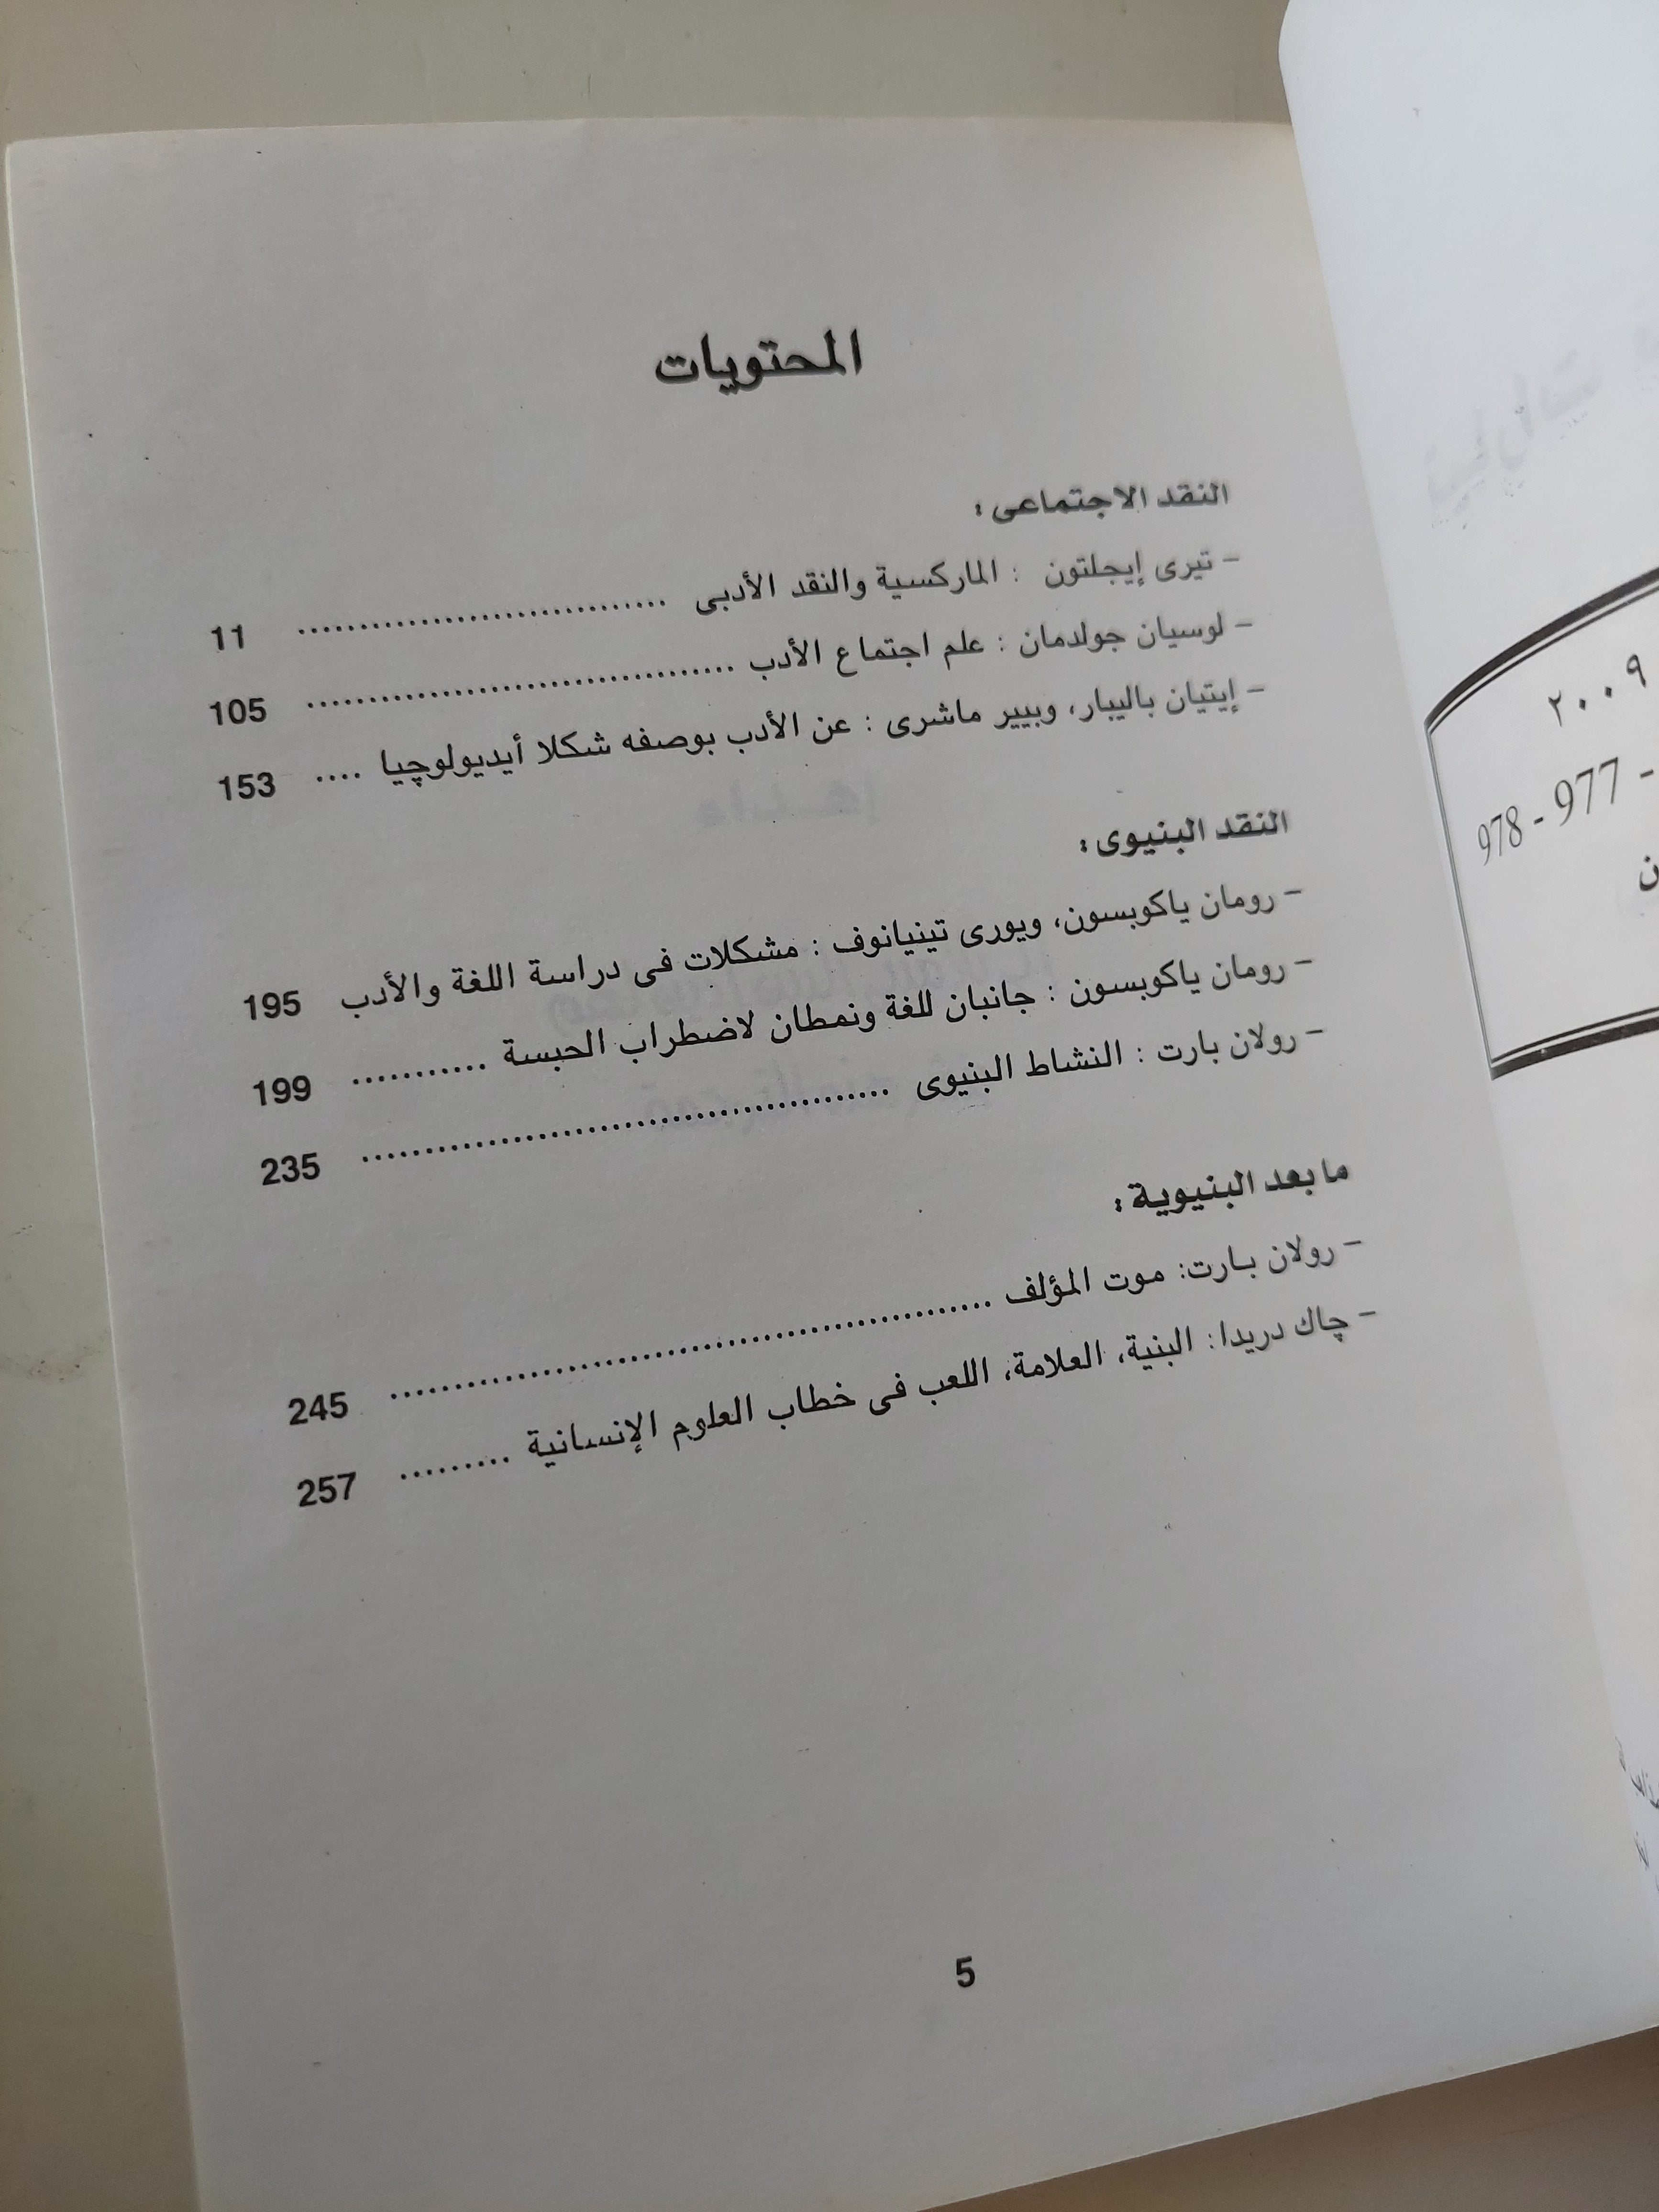 المحتويات
النقد الاجتماعى :
- تيرى إيجلتون : الماركسية والنقد الأدبى .............................. 11
- لوسيان جولدمان : علم اجتماع الأدب .................................. 105
- إيتيان باليبار، وبيير ماشرى : عن الأدب بوصفه شكلا أيديولوچيا .... 153
النقد البنيوى :
- رومان ياكوبسون، ويورى تينيانوف : مشكلات فى دراسة اللغة والأدب 195
- رومان ياكوبسون : جانبان للغة ونمطان لاضطراب الحبسة ........... 199
- رولان بارت : النشاط البنيوى .......................................... 235
ما بعد البنيوية :
- رولان بارت: موت المؤلف ............................................... 245
- چاك دريدا: البنية، العلامة، اللعب فى خطاب العلوم الإنسانية ......... 257
5
٢٠٠٩
978 - 977 -